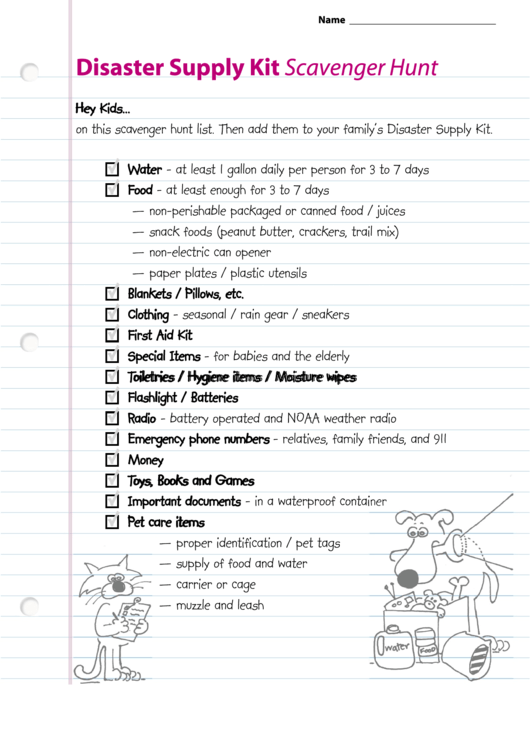 Name
Disaster Supply Kit Scavenger Hunt
Hey Kids...
on this scavenger hunt list. Then add them to your family's Disaster Supply Kit.
Water - at least 1 gallon daily per person for 3 to 7 days
Food - at least enough for 3 to 7 days
— non-perishable packaged or canned food / juices
— snack foods (peanut butter, crackers, trail mix)
— non-electric can opener
— paper plates / plastic utensils
Blankets / Pillows, etc.
Clothing - seasonal / rain gear / sneakers
First Aid Kit
Special Items - for babies and the elderly
Toiletries / Hygiene items / Moisture wipes
Flashlight / Batteries
Radio - battery operated and NOAA weather radio
Emergency phone numbers - relatives, family friends, and 911
Money
Toys, Books and Games
Important documents - in a waterproof container
Pet care items
— proper identification / pet tags
— supply of food and water
— carrier or cage
— muzzle and leash
water
FOOD